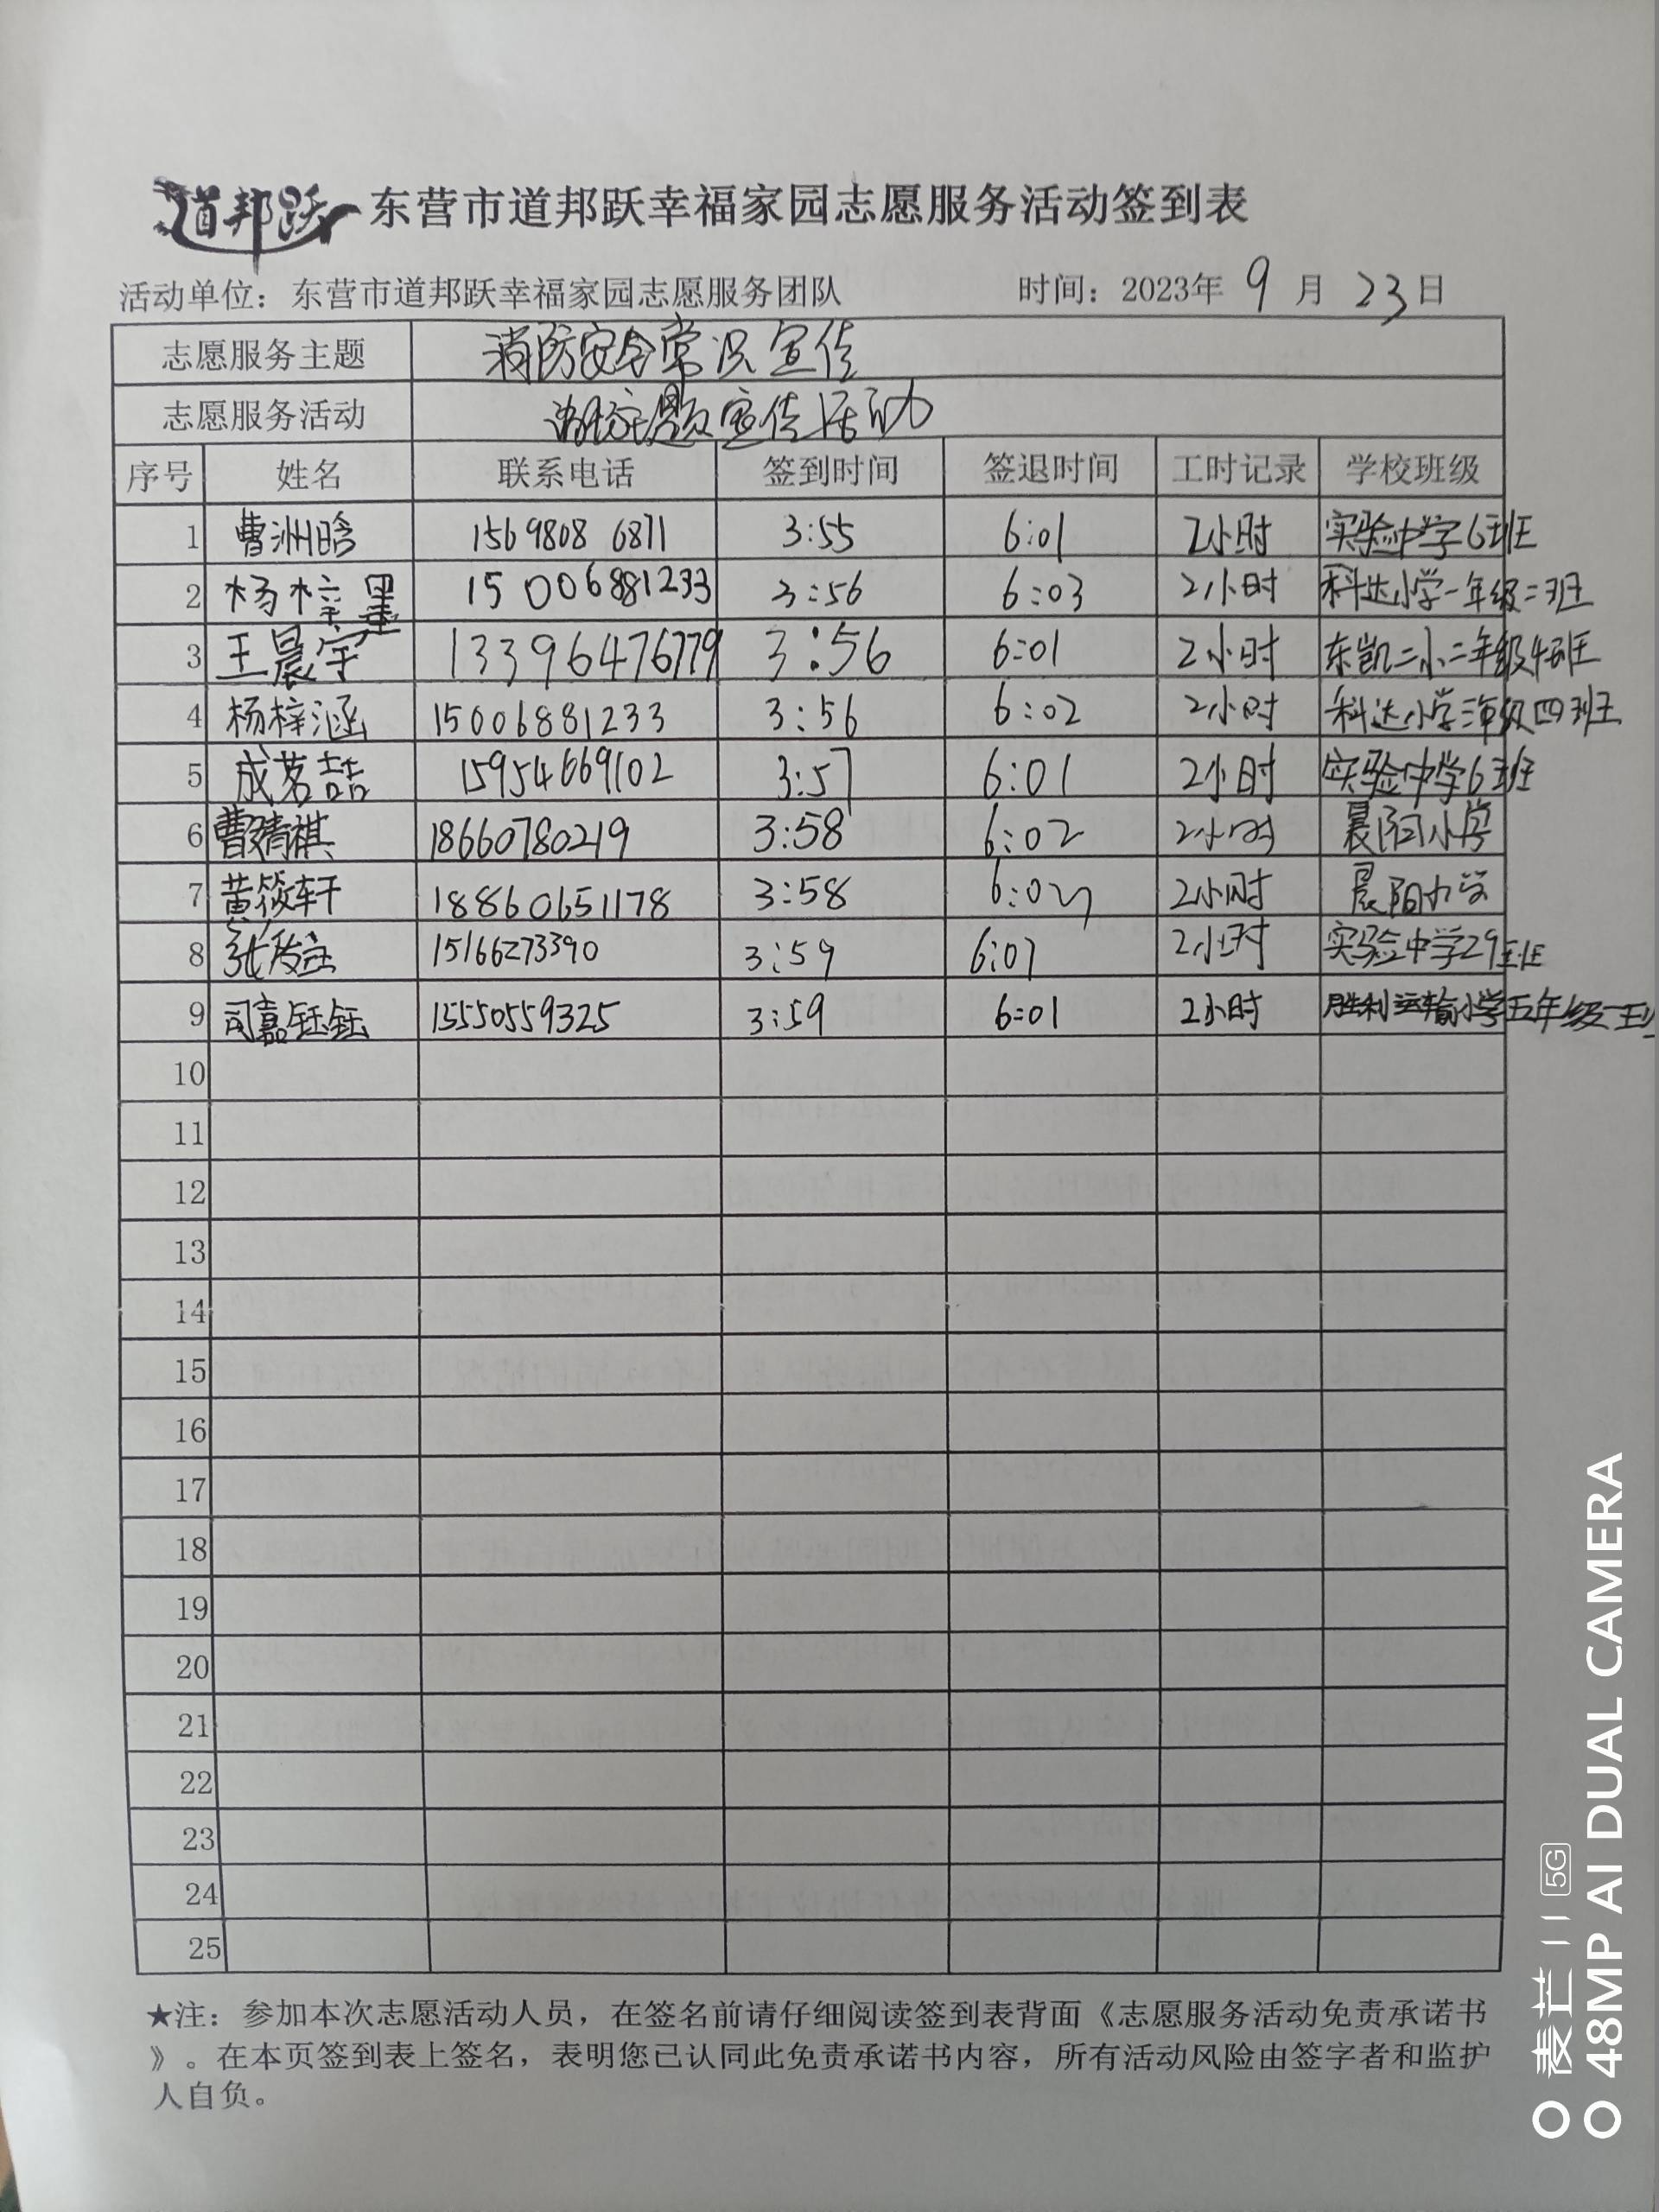 道邦跃 东营市道邦跃幸福家园志愿服务活动签到表
活动单位：东营市道邦跃幸福家园志愿服务团队 时间：2023年 9 月 23 日
志愿服务主题 消防安全常识宣传
志愿服务活动 消防主题宣传活动
序号 姓名 联系电话 签到时间 签退时间 工时记录 学校班级
1 曹洲晗 1569808 6871 3:55 6:01 2小时 实验中学6班
2 杨梓墨 15006881233 3:56 6:03 2小时 科达小学一年级二班
3 王晨宇 13396476779 3:56 6:01 2小时 东凯二小二年级4班
4 杨梓涵 15006881233 3:56 6:02 2小时 科达小学三年级四班
5 成茗喆 15954669102 3:57 6:01 2小时 实验中学6班
6 曹婧祺 18660780219 3:58 6:02 2小时 晨阳小学
7 黄筱轩 18860651178 3:58 6:02 2小时 晨阳小学
8 张 15166273390 3:59 6:07 2小时 实验中学29班
9 司嘉钰钰 15550559325 3:59 6:01 2小时 胜利运输小学五年级一班
10
11
12
13
14
15
16
17
18
19
20
21
22
23
24
25
★注：参加本次志愿活动人员，在签名前请仔细阅读签到表背面《志愿服务活动免责承诺书
》。在本页签到表上签名，表明您已认同此免责承诺书内容，所有活动风险由签字者和监护
人自负。
麦芒11 5G
48MP AI DUAL CAMERA